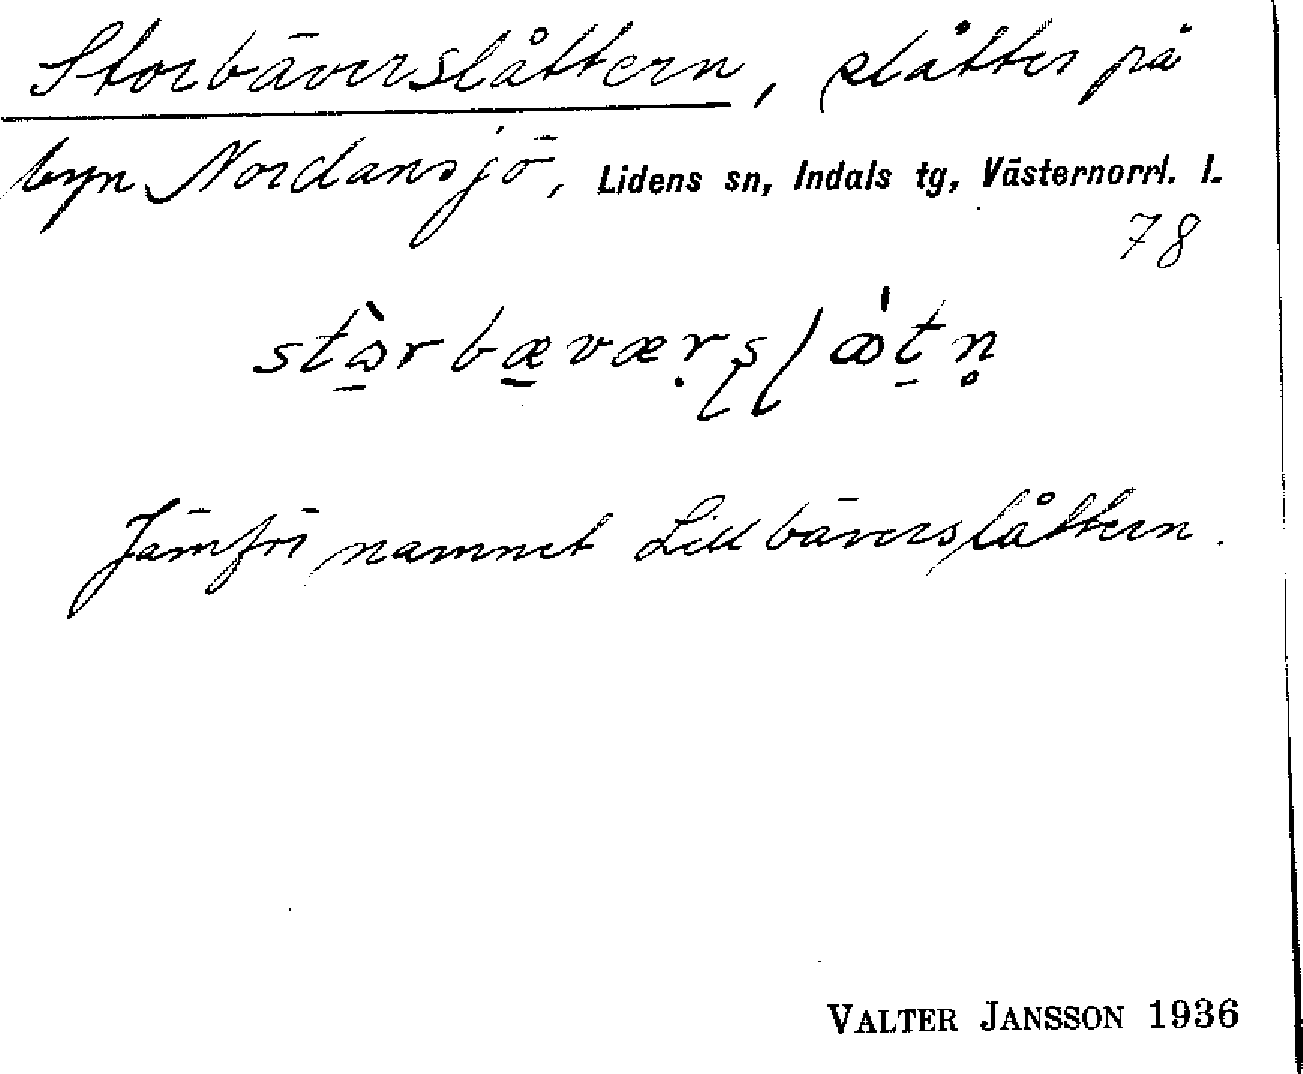 Storbäverslåttern, slåtter på
byn Nordansjö, Lidens sn, Indals tg, Västernorrl. l.
78
Jämför namnet Lillbäverslåttern.
VALTER JANSSON 1936